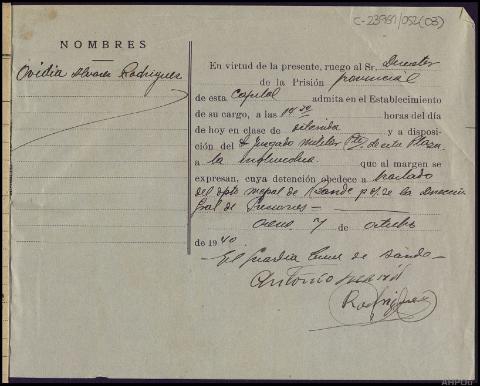 C-23981/052(03)
NOMBRES
Ovidia Alvarez Rodriguez
En virtud de la presente, ruego al Sr. Director
de la Prisión provincial
de esta Capital admita en el Establecimiento
de su cargo, a las horas del día
de hoy en clase de detenida y a disposi-
ción del Juzgado militar de esta Plaza
a la individua que al margen se
expresan, cuya detención obedece a traslado
del dpto mcpal de de la Dirección
Gral de Prisiones
7 de octubre
de 1940
El Guardia Civil de
Antonio
Rodriguez
AHPOu